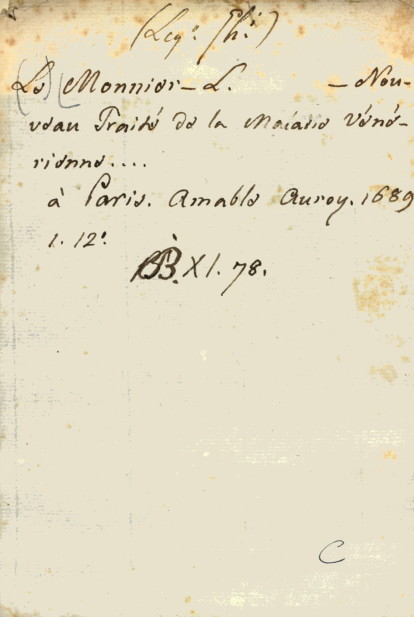 (Leg. Th.)
(Le) Monnier - L. - Nou-
veau Traité de la Maladie Véné-
rienne....
à Paris. Amable Auroy. 1689
1. 12°.
B. XI. 78.
C